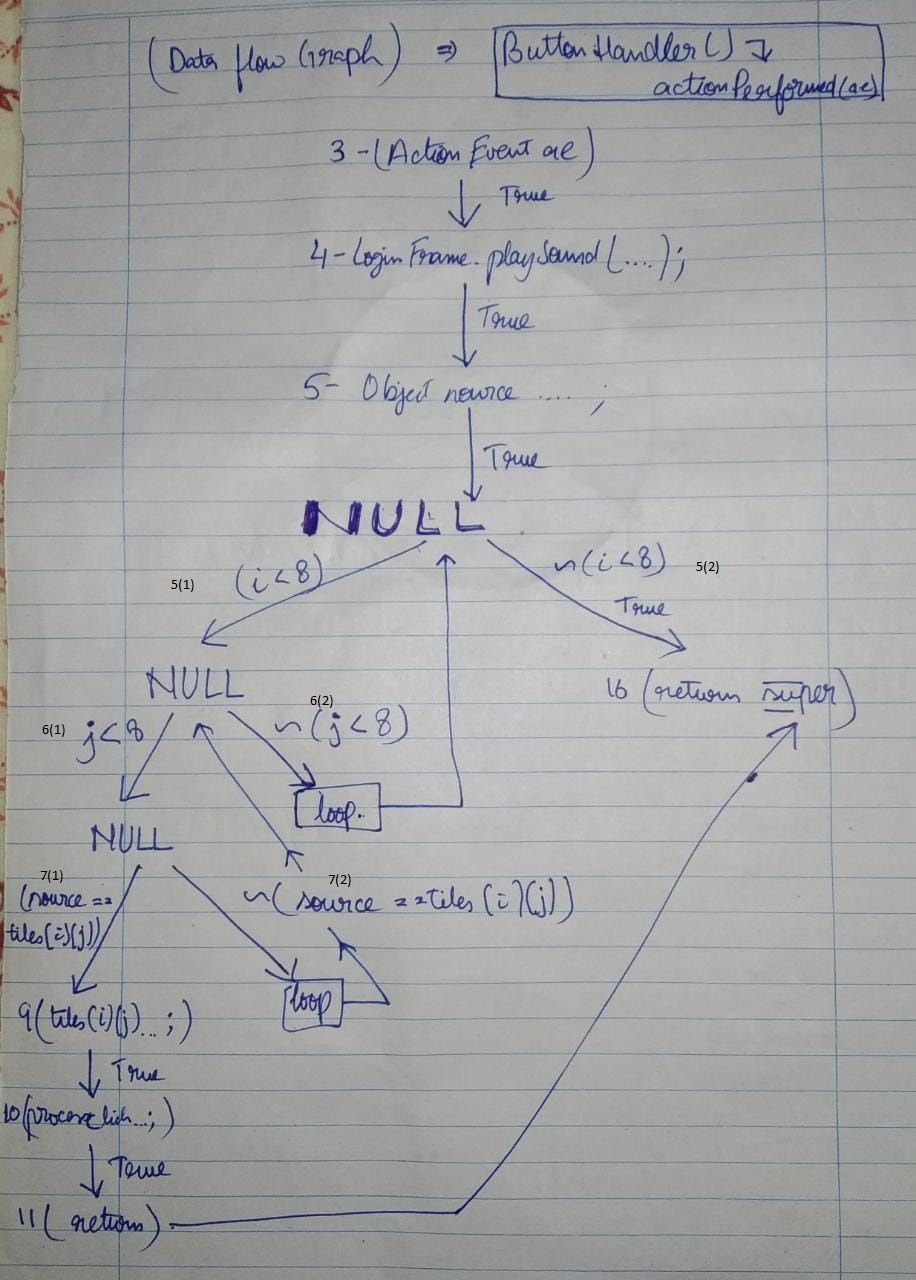 (Data flow Graph) ⇒ ButtonHandler() ↴
actionPerformed(ae)
3 - (Action Event ae)
True
4 - Login Frame. playSound (....);
True
5 - Object source .... ;
True
NULL
5(1) (i < 8) ~(i < 8) 5(2)
True
NULL
16 (return super)
6(1) j < 8 6(2) ~(j < 8)
loop.
NULL
7(1) 7(2)
(source == ~(source == tiles (i)(j))
tiles(i)(j))
loop
9 (tiles(i)(j)...;)
True
10 (process lick...;)
True
11 (return)